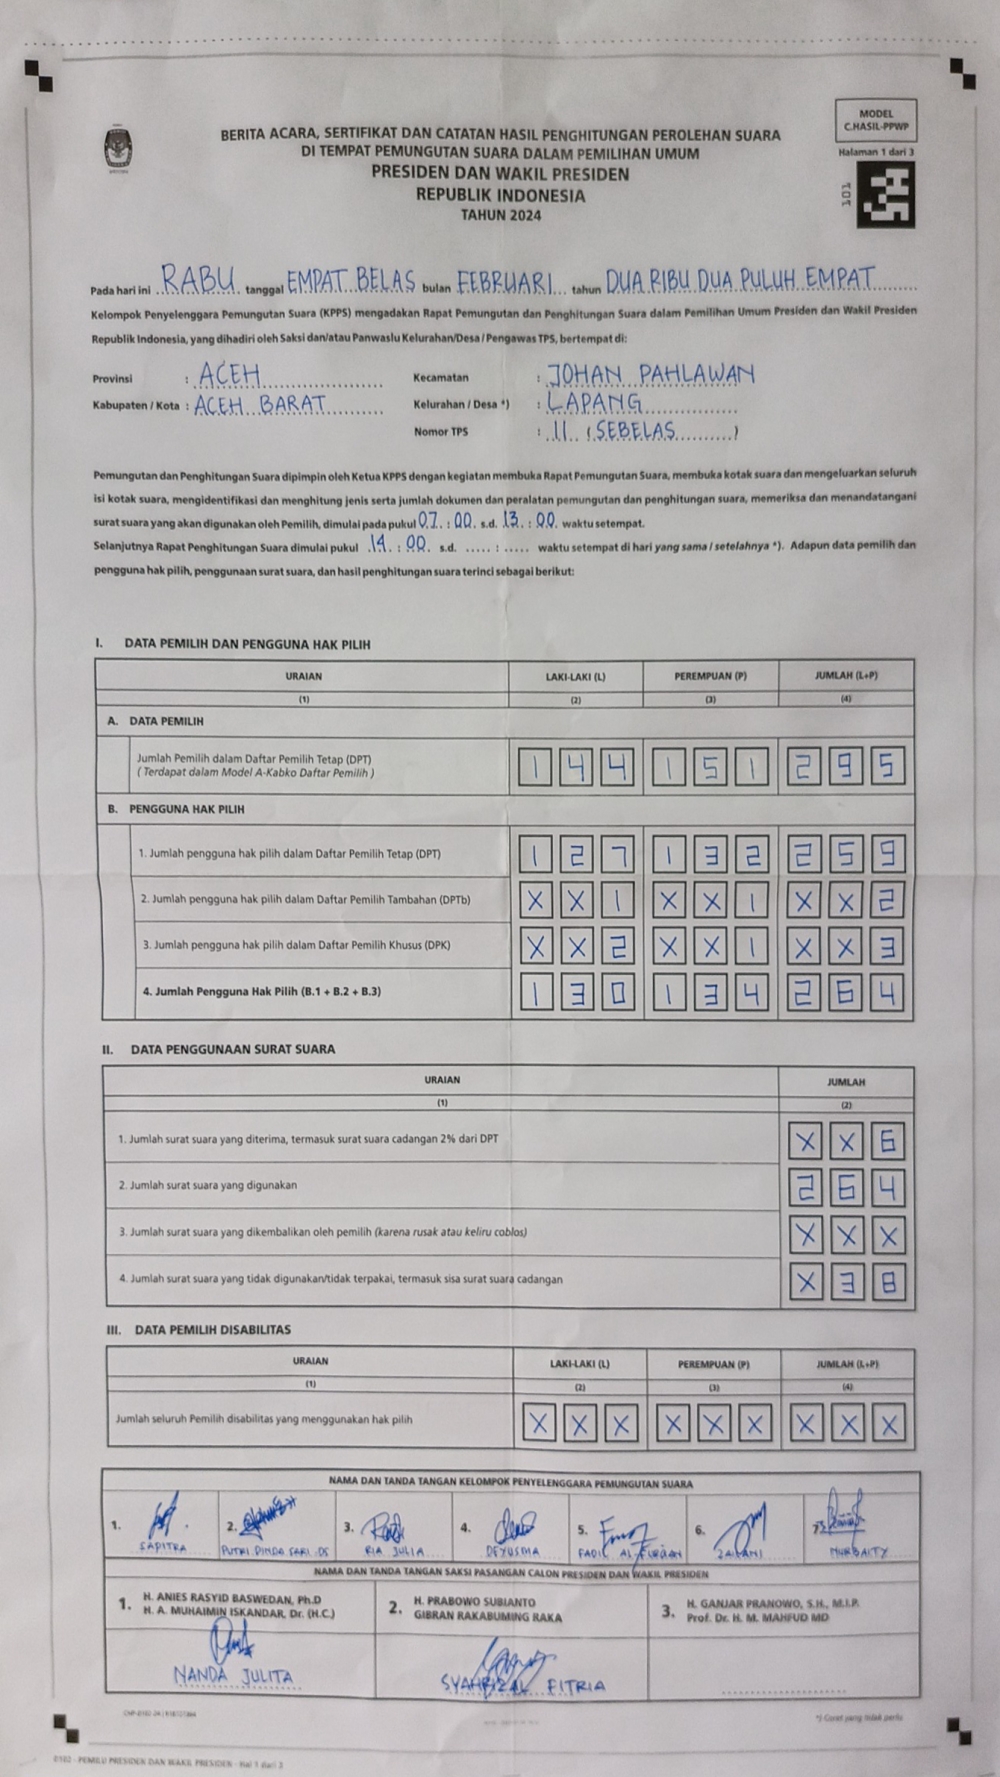 MODEL
C.HASIL-PPWP
Halaman 1 dari 3
101
BERITA ACARA, SERTIFIKAT DAN CATATAN HASIL PENGHITUNGAN PEROLEHAN SUARA
DI TEMPAT PEMUNGUTAN SUARA DALAM PEMILIHAN UMUM
PRESIDEN DAN WAKIL PRESIDEN
REPUBLIK INDONESIA
TAHUN 2024
Pada hari ini RABU tanggal EMPAT BELAS bulan FEBRUARI tahun DUA RIBU DUA PULUH EMPAT
Kelompok Penyelenggara Pemungutan Suara (KPPS) mengadakan Rapat Pemungutan dan Penghitungan Suara dalam Pemilihan Umum Presiden dan Wakil Presiden
Republik Indonesia, yang dihadiri oleh Saksi dan/atau Panwaslu Kelurahan/Desa / Pengawas TPS, bertempat di:
Provinsi : ACEH Kecamatan : JOHAN PAHLAWAN
Kabupaten / Kota : ACEH BARAT Kelurahan / Desa *) : LAPANG
Nomor TPS : 11 (SEBELAS)
Pemungutan dan Penghitungan Suara dipimpin oleh Ketua KPPS dengan kegiatan membuka Rapat Pemungutan Suara, membuka kotak suara dan mengeluarkan seluruh
isi kotak suara, mengidentifikasi dan menghitung jenis serta jumlah dokumen dan peralatan pemungutan dan penghitungan suara, memeriksa dan menandatangani
surat suara yang akan digunakan oleh Pemilih, dimulai pada pukul 07 : 00 s.d. 13 : 00 waktu setempat.
Selanjutnya Rapat Penghitungan Suara dimulai pukul 14 : 00 s.d. ..... : ..... waktu setempat di hari yang sama / setelahnya *). Adapun data pemilih dan
pengguna hak pilih, penggunaan surat suara, dan hasil penghitungan suara terinci sebagai berikut:
I. DATA PEMILIH DAN PENGGUNA HAK PILIH
URAIAN LAKI-LAKI (L) PEREMPUAN (P) JUMLAH (L+P)
(1) (2) (3) (4)
A. DATA PEMILIH
Jumlah Pemilih dalam Daftar Pemilih Tetap (DPT) 1 4 4 1 5 1 2 9 5
( Terdapat dalam Model A-Kabko Daftar Pemilih )
B. PENGGUNA HAK PILIH
1. Jumlah pengguna hak pilih dalam Daftar Pemilih Tetap (DPT) 1 2 7 1 3 2 2 5 9
2. Jumlah pengguna hak pilih dalam Daftar Pemilih Tambahan (DPTb) X X 1 X X 1 X X 2
3. Jumlah pengguna hak pilih dalam Daftar Pemilih Khusus (DPK) X X 2 X X 1 X X 3
4. Jumlah Pengguna Hak Pilih (B.1 + B.2 + B.3) 1 3 0 1 3 4 2 6 4
II. DATA PENGGUNAAN SURAT SUARA
URAIAN JUMLAH
(1) (2)
1. Jumlah surat suara yang diterima, termasuk surat suara cadangan 2% dari DPT X X 6
2. Jumlah surat suara yang digunakan 2 6 4
3. Jumlah surat suara yang dikembalikan oleh pemilih (karena rusak atau keliru coblos) X X X
4. Jumlah surat suara yang tidak digunakan/tidak terpakai, termasuk sisa surat suara cadangan X 3 8
III. DATA PEMILIH DISABILITAS
URAIAN LAKI-LAKI (L) PEREMPUAN (P) JUMLAH (L+P)
(1) (2) (3) (4)
Jumlah seluruh Pemilih disabilitas yang menggunakan hak pilih X X X X X X X X X
NAMA DAN TANDA TANGAN KELOMPOK PENYELENGGARA PEMUNGUTAN SUARA
1. 2. 3. 4. 5. 6. 7.
SAPITRA PUTRI DINDA SARI DS RIA JULIA DEYUSMA FADIL AL FURQAN ZAILANI NURBAITY
NAMA DAN TANDA TANGAN SAKSI PASANGAN CALON PRESIDEN DAN WAKIL PRESIDEN
1. H. ANIES RASYID BASWEDAN, Ph.D
H. A. MUHAIMIN ISKANDAR, Dr. (H.C.)
2. H. PRABOWO SUBIANTO
GIBRAN RAKABUMING RAKA
3. H. GANJAR PRANOWO, S.H., M.I.P.
Prof. Dr. H. M. MAHFUD MD
NANDA JULITA SYAHRIZAL FITRIA
*) Coret yang tidak perlu
0102 - PEMILU PRESIDEN DAN WAKIL PRESIDEN - Hal 1 dari 3